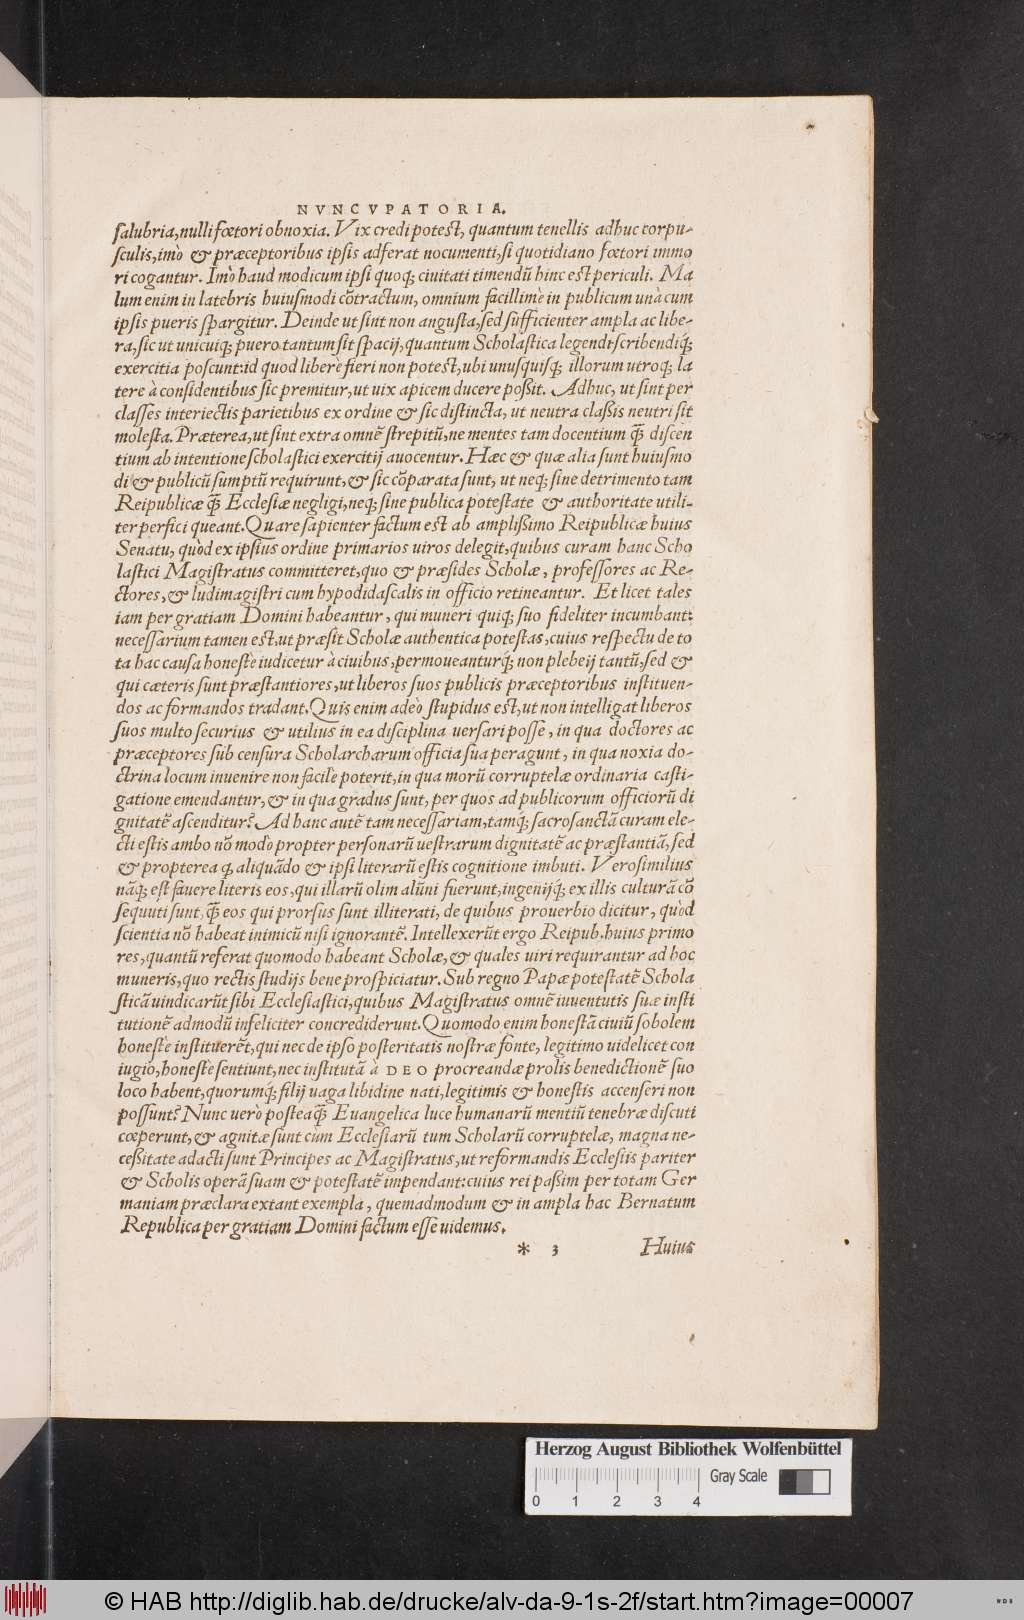 NVNCVPATORIA.
salubria, nulli fœtori obnoxia. Vix credi potest, quantum tenellis adhuc corpu-
sculis, imò & præceptoribus ipsis adferat nocumenti, si quotidiano fœtori immo
ri cogantur. Imò haud modicum ipsi quoq; ciuitati timendũ hinc est periculi. Ma
lum enim in latebris huiusmodi cõtractum, omnium facillimè in publicum unà cum
ipsis pueris spargitur. Deinde ut sint non angusta, sed sufficienter ampla ac libe-
ra, sic ut unicuiq; puero tantum sit spacij, quantum Scholastica legendi scribendiq́;
exercitia poscunt: id quod liberè fieri non potest, ubi unusquisq; illorum utroq; la
tere à considentibus sic premitur, ut uix apicem ducere poßit. Adhuc, ut sint per
classes interiectis parietibus ex ordine & sic distincta, ut neutra claßis neutri sit
molesta. Præterea, ut sint extra omnẽ strepitũ, ne mentes tam docentium q̃ discen
tium ab intentione scholastici exercitij auocentur. Hæc & quæ alia sunt huiusmo
di & publicũ sumptũ requirunt, & sic cõparata sunt, ut neq; sine detrimento tam
Reipublicæ q̃ Ecclesiæ negligi, neq; sine publica potestate & authoritate utili-
ter perfici queant. Quare sapienter factum est ab amplißimo Reipublicæ huius
Senatu, quòd ex ipsius ordine primarios uiros delegit, quibus curam hanc Scho
lastici Magistratus committeret, quo & præsides Scholæ, professores ac Re-
ctores, & ludimagistri cum hypodidascalis in officio retineantur. Et licet tales
iam per gratiam Domini habeantur, qui muneri quiq; suo fideliter incumbant:
necessarium tamen est, ut præsit Scholæ authentica potestas, cuius respectu de to
ta hac causa honestè iudicetur à ciuibus, permoueanturq́; non plebeij tantũ, sed &
qui cæteris sunt præstantiores, ut liberos suos publicis præceptoribus instituen-
dos ac formandos tradant. Quis enim adeò stupidus est, ut non intelligat liberos
suos multo securius & utilius in ea disciplina uersari posse, in qua doctores ac
præceptores sub censura Scholarcharum officia sua peragunt, in qua noxia do-
ctrina locum inuenire non facilè poterit, in qua morũ corruptelæ ordinaria casti-
gatione emendantur, & in qua gradus sunt, per quos ad publicorum officiorũ di
gnitatẽ ascenditur? Ad hanc autẽ tam necessariam, tamq́; sacrosanctã curam ele-
cti estis ambo nõ modò propter personarũ uestrarum dignitatẽ ac præstantiã, sed
& propterea q, aliquãdo & ipsi literarũ estis cognitione imbuti. Verosimilius
nãq; est fauere literis eos, qui illarũ olim alũni fuerunt, ingenijq́; ex illis culturã cõ
sequuti sunt, q̃ eos qui prorsus sunt illiterati, de quibus prouerbio dicitur, quòd
scientia nõ habeat inimicũ nisi ignorantẽ. Intellexerũt ergo Reipub. huius primo
res, quantũ referat quomodo habeant Scholæ, & quales uiri requirantur ad hoc
muneris, quo rectis studijs bene prospiciatur. Sub regno Papæ potestatẽ Schola
sticã uindicarũt sibi Ecclesiastici, quibus Magistratus omnẽ iuuentutis suæ insti
tutionẽ admodũ infeliciter concrediderunt. Quomodo enim honestã ciuiũ sobolem
honestè instituerẽt, qui nec de ipso posteritatis nostræ fonte, legitimo uidelicet con
iugio, honestè sentiunt, nec institutã à DEO procreandæ prolis benedictionẽ suo
loco habent, quorumq́; filij uaga libidine nati, legitimis & honestis accenseri non
possunt? Nunc uerò posteaq̃ Euangelica luce humanarũ mentiũ tenebræ discuti
cœperunt, & agnitæ sunt cum Ecclesiarũ tum Scholarũ corruptelæ, magna ne-
ceßitate adacti sunt Principes ac Magistratus, ut reformandis Ecclesiis pariter
& Scholis operã suam & potestatẽ impendant: cuius rei paßim per totam Ger
maniam præclara extant exempla, quemadmodum & in ampla hac Bernatum
Republica per gratiam Domini factum esse uidemus.
* 3 Huius
Herzog August Bibliothek Wolfenbüttel
Gray Scale
0 1 2 3 4
© HAB http://diglib.hab.de/drucke/alv-da-9-1s-2f/start.htm?image=00007